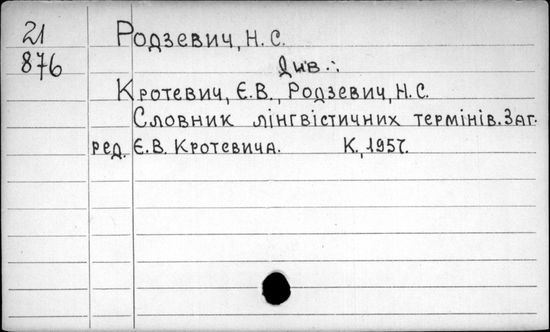 21
876
Родзевич, Н. С.
Див.:
Кротевич, Є.В., Родзевич, Н.С.
Словник лінгвістичних термінів. Заг.
ред. Є.В. Кротевича. К., 1957.